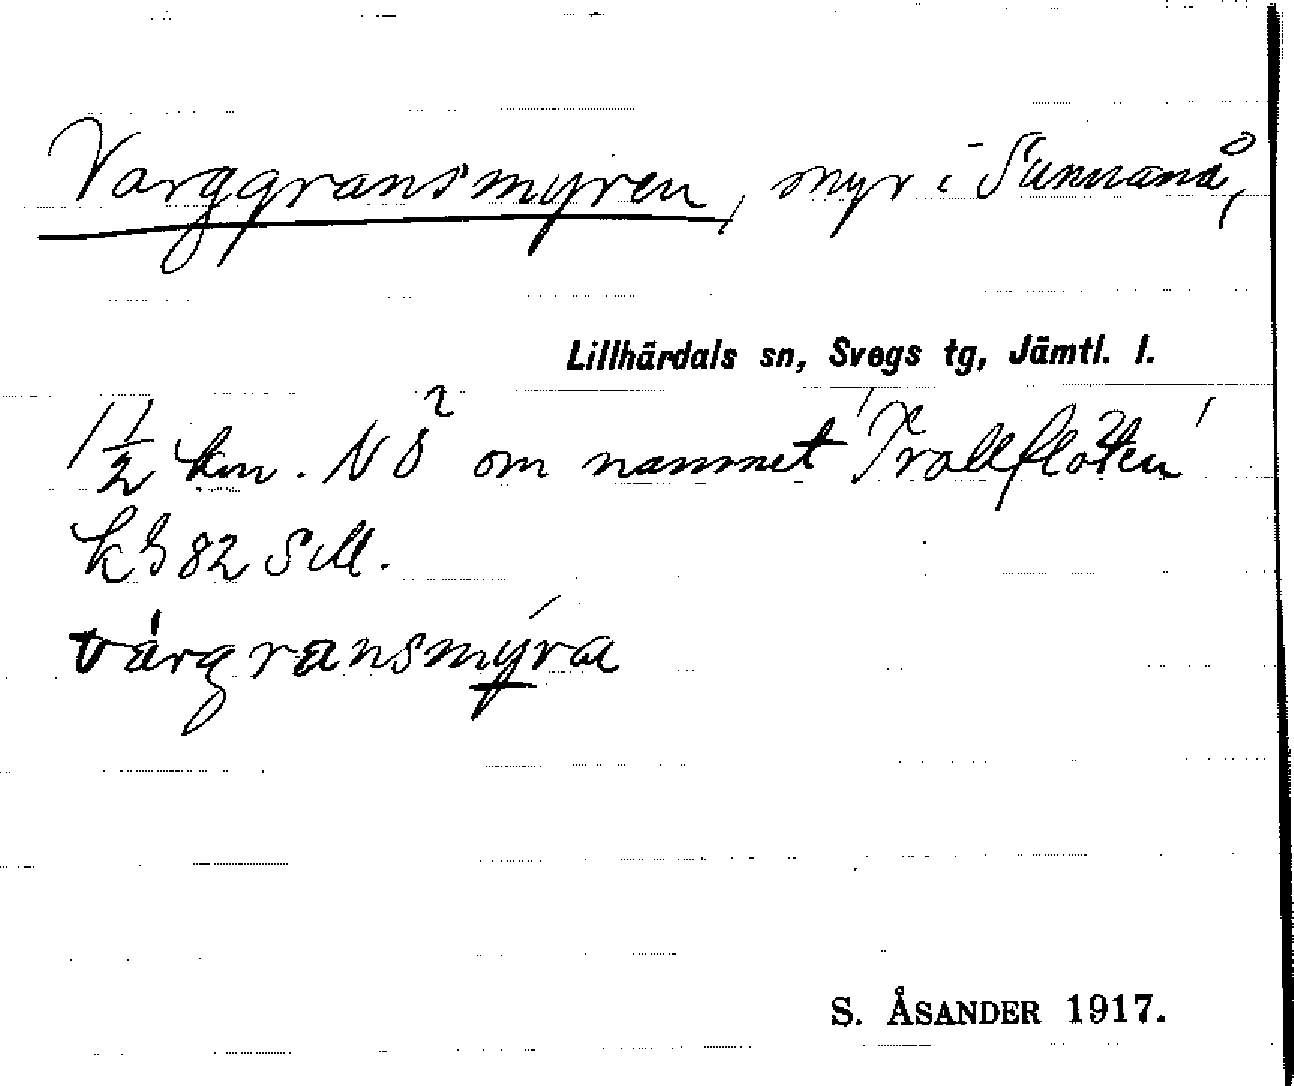 Varggransmyren, myr i Sunnanå,
Lillhärdals sn, Svegs tg, Jämtl. l.
1 1/2 km. NÖ om namnet 'Trollflöten'
kb 82 SM.
várgransmýra
S. ÅSANDER 1917.